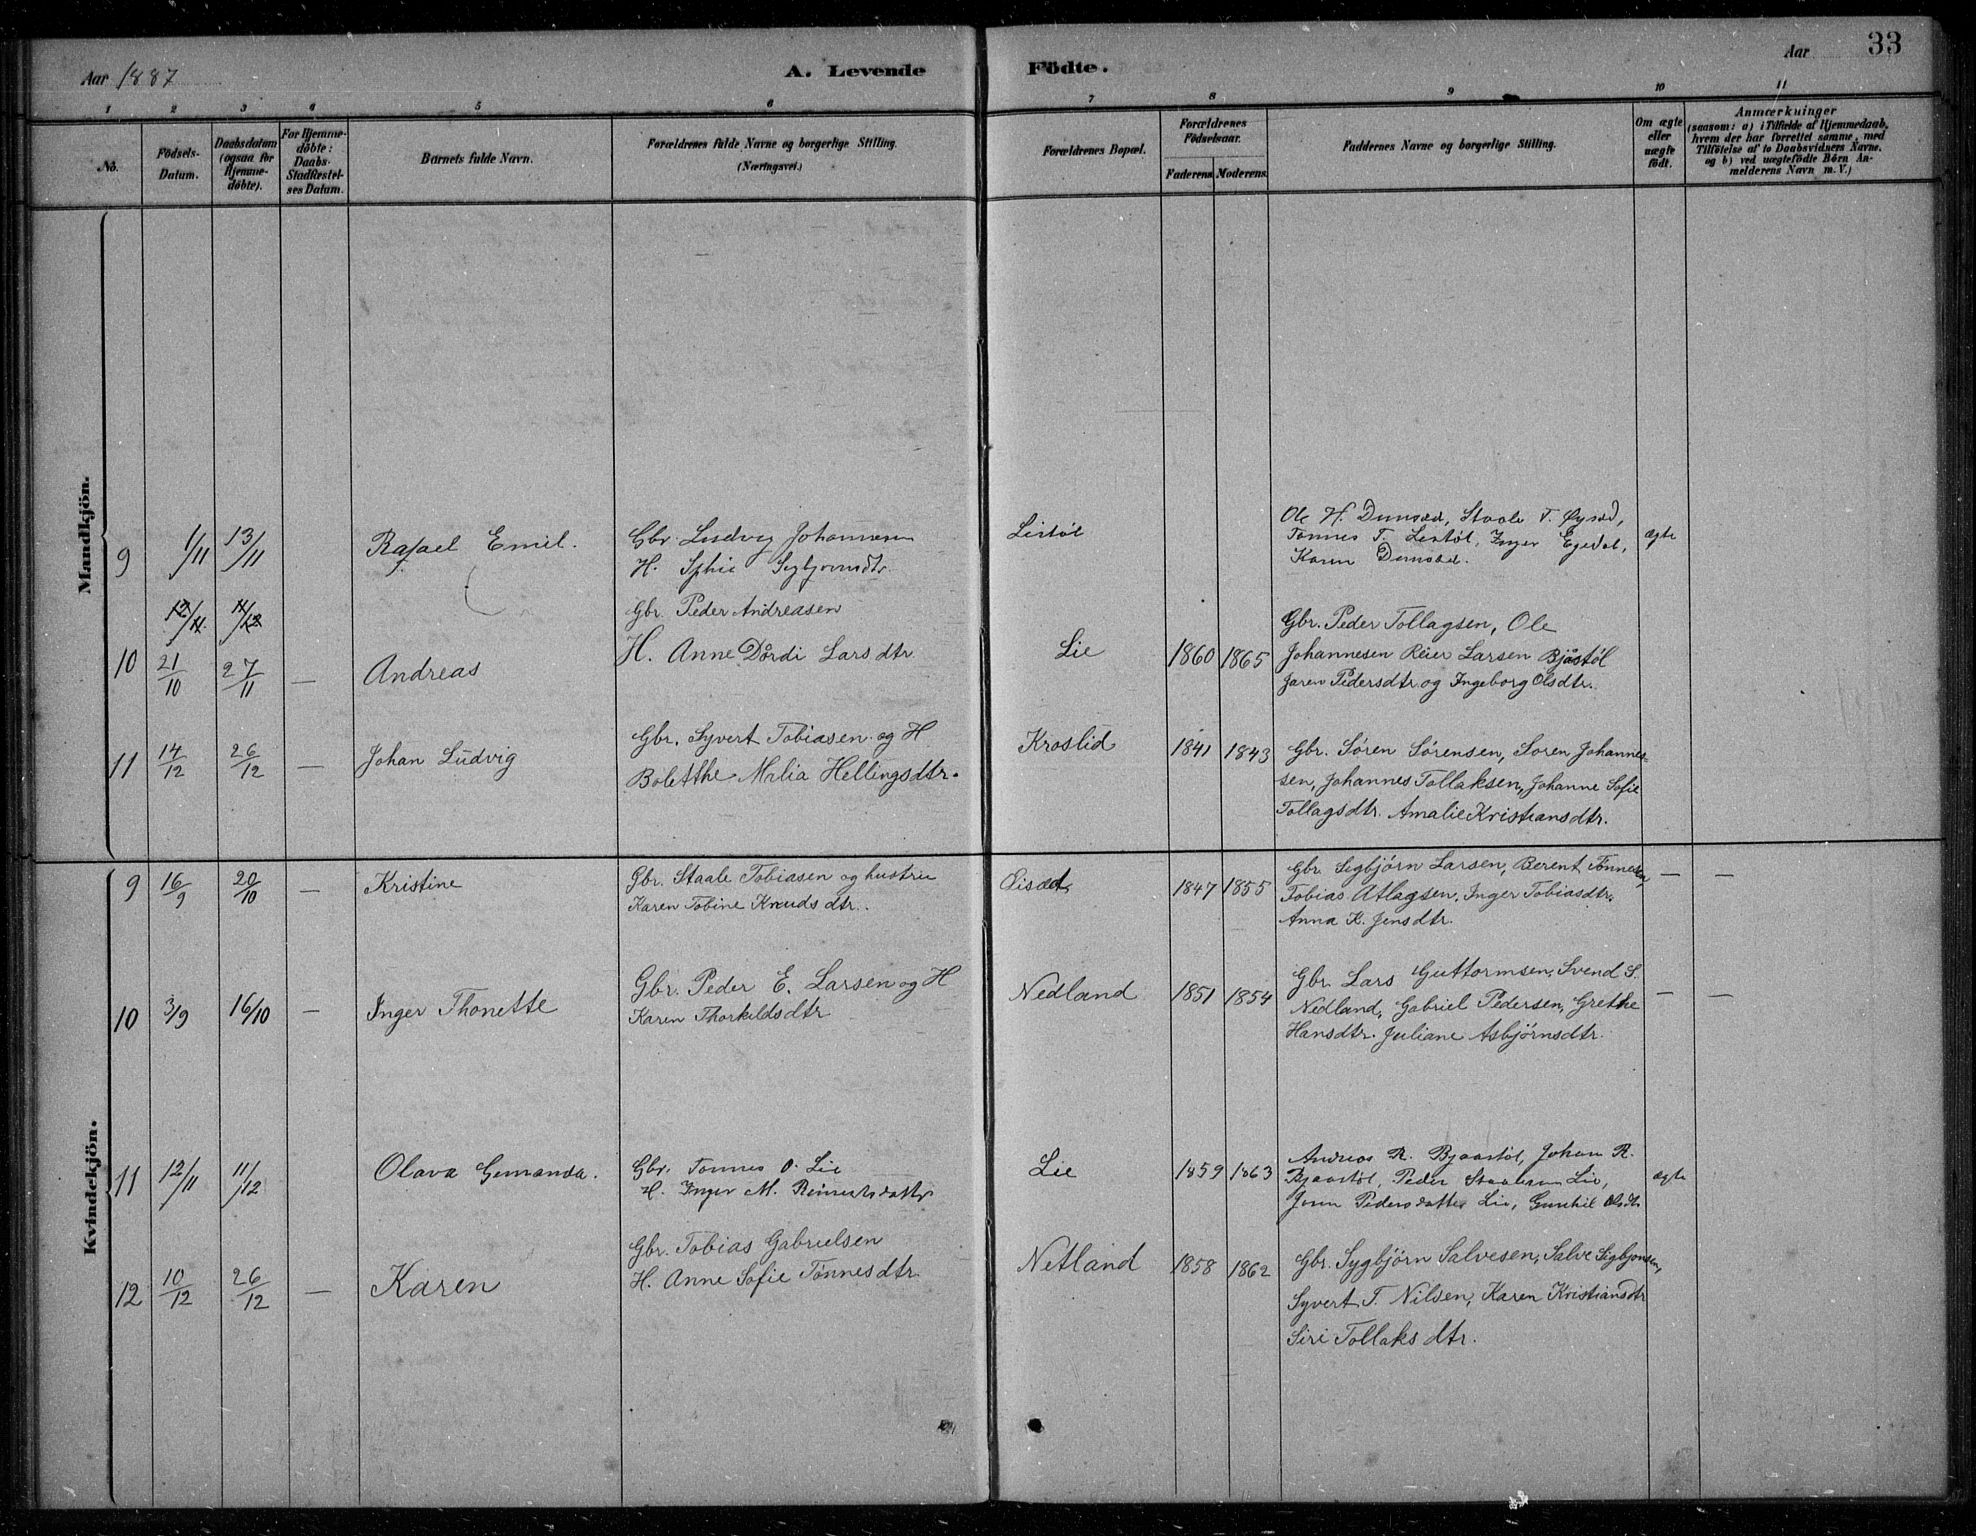 Aar 1887
A. Levende Födte.
Aar
33
1 2 3 4 5 6 7 8 9 10 11
No.
Födsels-Datum.
Daabsdatum (ogsaa for Hjemme-döbte).
For Hjemme-döbte: Daabs-Stadfæstel-ses Datum.
Barnets fulde Navn.
Forældrenes fulde Navne og borgerlige Stilling.
(Næringsvei.)
Forældrenes Bopæl.
Forældrenes Födselsaar.
Faderens Moderens
Faddernes Navne og borgerlige Stilling.
Om ægte eller uægte födt.
Anmærkninger
(saasom: a) i Tilfælde af Hjemmedaab,
hvem der har forrettet samme, med
Tilföielse af to Daabsvidners Navne,
og b) ved uægtefödte Börn An-
melderens Navn m. V.)
Mandkjön.
9 1/11 13/11 Rafael Emil. Gbr. Ludvig Johannesen Listøl Ole H. Dunsæd, Staale T. Øysæd, ægte
H. Sphie Sigbjørnsdtr. Tønnes T. Listøl, Inger Egedal,
Karen Dunsæd.
12/11 11/12 Gbr. Peder Andreasen Gbr. Peder Tollagsen, Ole
10 21/10 27/11 — Andreas H. Anne Dårdi Larsdtr Lie 1860 1865 Johannesen Reier Larsen Bjåstøl
Jaren Pedersdtr og Ingeborg Olsdtr.
11 14/12 26/12 — Johan Ludvig Gbr. Syvert Tobiasen og H Kroslid 1841 1843 Gbr. Søren Sørensen, Soren Johannes-
Boletthe Malia Hellingsdtr. sen, Johannes Tollaksen, Johanne Sofie
Tollagsdtr. Amalie Kristiansdtr.
Kvindekjön.
9 16/9 20/10 — Kristine Gbr. Staale Tobiasen og hustru Øisæt, 1847 1855 Gbr. Sigbjørn Larsen, Berent Tønnesen, — —
Karen Tobine Knudsdtr. Tobias Atlagsen, Inger Tobiasdtr.
Anna K. Jensdtr.
10 3/9 16/10 — Inger Thonette Gbr. Peder E. Larsen og H Nedland 1851 1854 Gbr. Lars Guttormsen, Svend S. — —
Karen Thorkildsdtr Nedland, Gabriel Pedersen, Grethe
Hansdtr. Juliane Asbjørnsdtr.
11 12/11 11/12 Olava Gemanda. Gbr. Tønnes O. Lie Lie 1859 1863 Andreas R. Bjaastøl, Johan R. ægte
H. Inger M. Reinertsdatter Bjaastøl, Peder Staalesen Lie,
Pedersdatter Lie, Gunhil Olsdtr
12 10/12 26/12 — Karen Gbr. Tobias Gabrielsen Netland 1858 1862 Gbr. Sygbjørn Salvesen, Salve Sigbjønsen,
H. Anne Sofie Tønnesdtr. Syvert T. Nilsen, Karen Kristiansdtr
Siri Tollaksdtr.